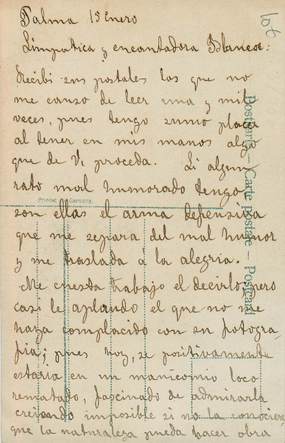 Palma 15 Enero
Simpatica y encantadora Blanca:
Recibi sus postales las que no
me canso de leer una y mil
veces, pues tengo sumo placer
al tener en mis manos algo
que de V. proceda. Si algun
rato mal humorado tengo
son ellas el arma defensiva
que me separa del mal humor
y me traslada a la alegria.
Me cuesta trabajo el decirlo, pero
casi le aplaudo el que no me
haya complacido con su fotogra-
fia; pues hoy, se positivamente
estaria en un manicomio loco
rematado, fascinado de admirarla
creyendo imposible si no la conociera
que la naturaleza pueda hacer obra
Postcard
Carte postale — Postcard